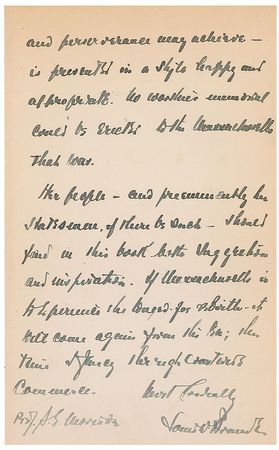 and perseverance may achieve –
is presented in a style happy and
appropriate. No worthier memorial
could be erected to the Massachusetts
that was.
Her people – and preeminently her
statesmen, if there be such – should
find in this book both suggestion
and inspiration. If Massachusetts is
to experience the longed-for rebirth – it
will come again from the sea; this
time I fancy through coastwise
Commerce.
Most Cordially
Louis D Brandeis
Prof. S. E. Morison